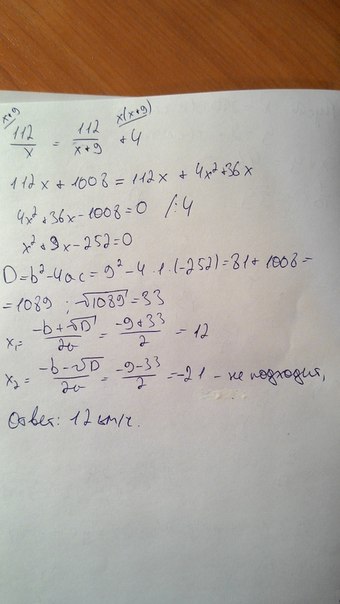 x+9 x(x+9)
112/x = 112/(x+9) + 4
112x + 1008 = 112x + 4x² + 36x
4x² + 36x - 1008 = 0 /:4
x² + 9x - 252 = 0
D = b² - 4ac = 9² - 4·1·(-252) = 81 + 1008 =
= 1089 ; √1089 = 33
x₁ = (-b+√D)/2a = (-9+33)/2 = 12
x₂ = (-b-√D)/2a = (-9-33)/2 = -21 - не подходит,
Ответ: 12 км/ч.